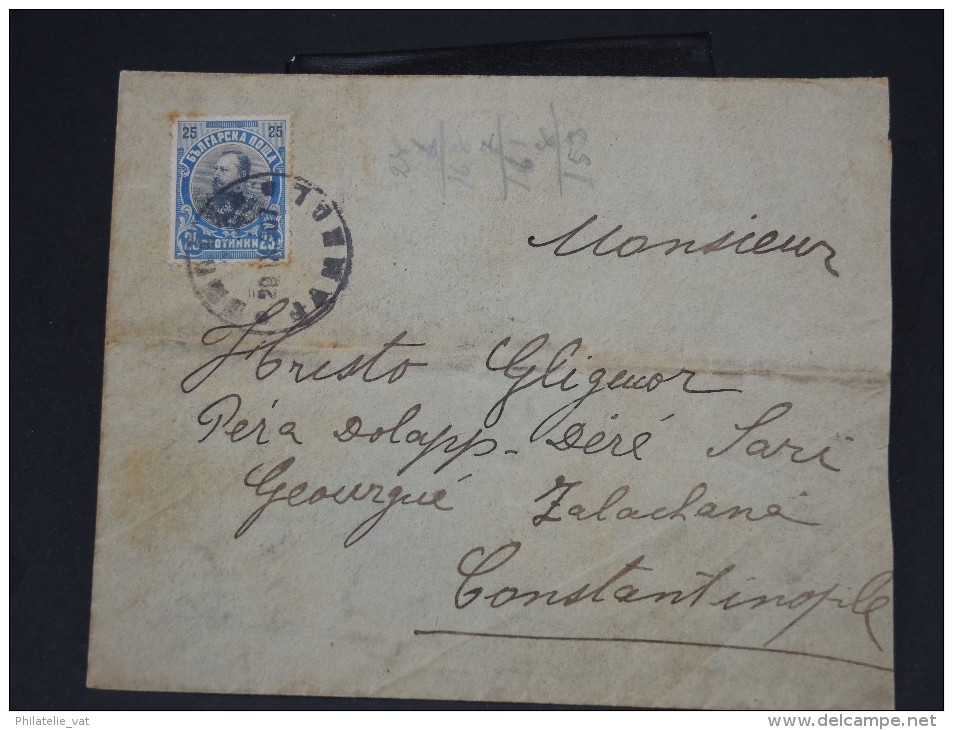 25 25
БЪЛГАРСКА ПОЩА
25 СТОТИНКИ 25
Monsieur
Hristo Gligenor
Péra Dolapp-Déré Sari
Geourgué Zalachana
Constantinople
161
153
Philatelie_vat
www.delcampe.net